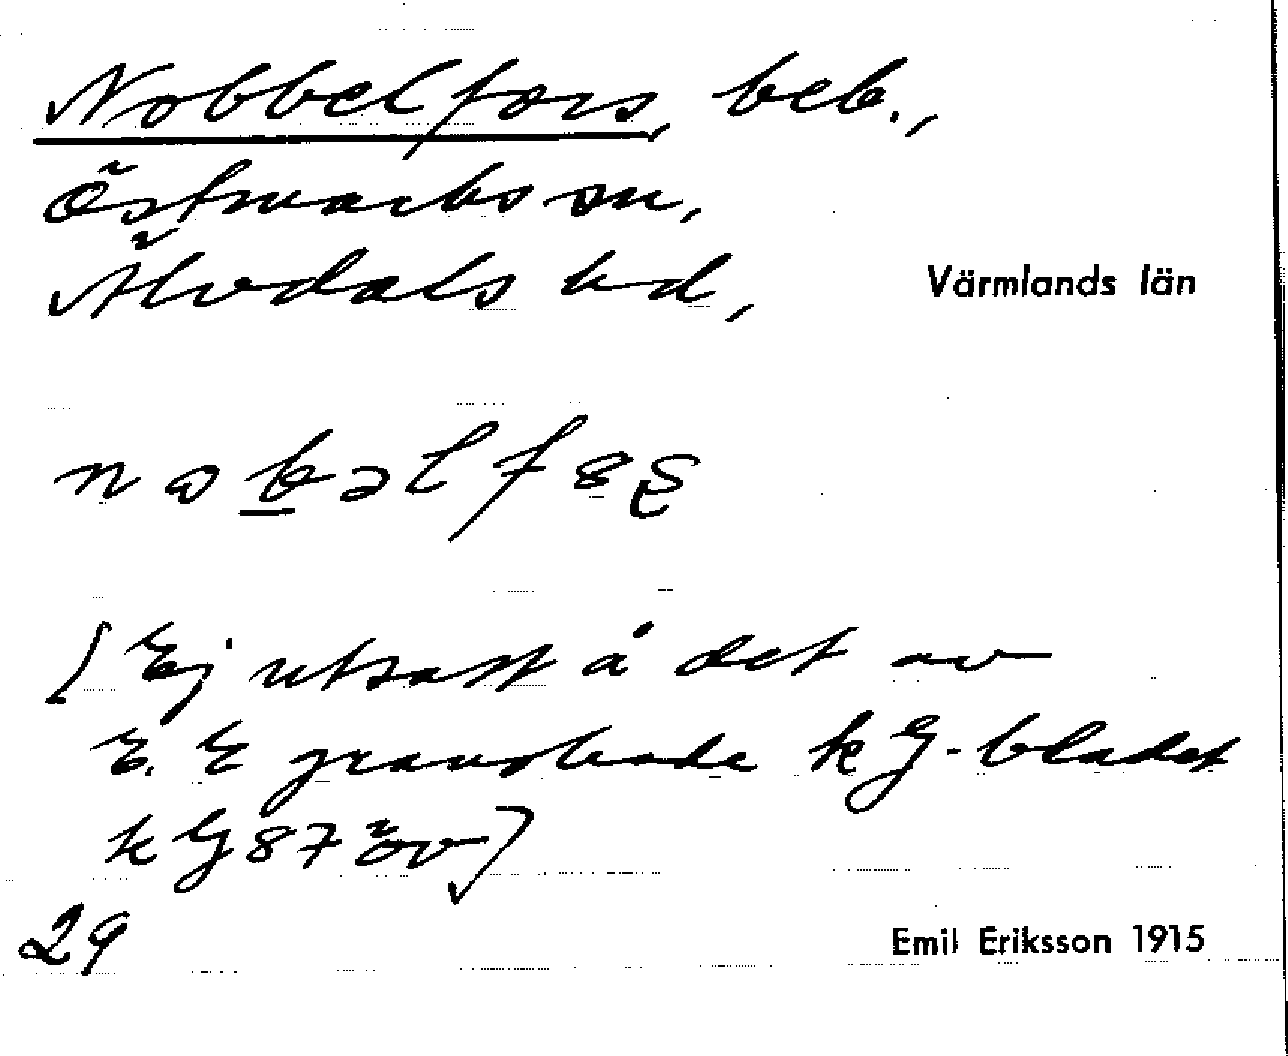 Nobbelfors, beb.,
Östmarks sn,
Älvdals hd, Värmlands län
[Ej utsatt å det av
E. E granskade kG-bladet
kG 87 öv]
29 Emil Eriksson 1915